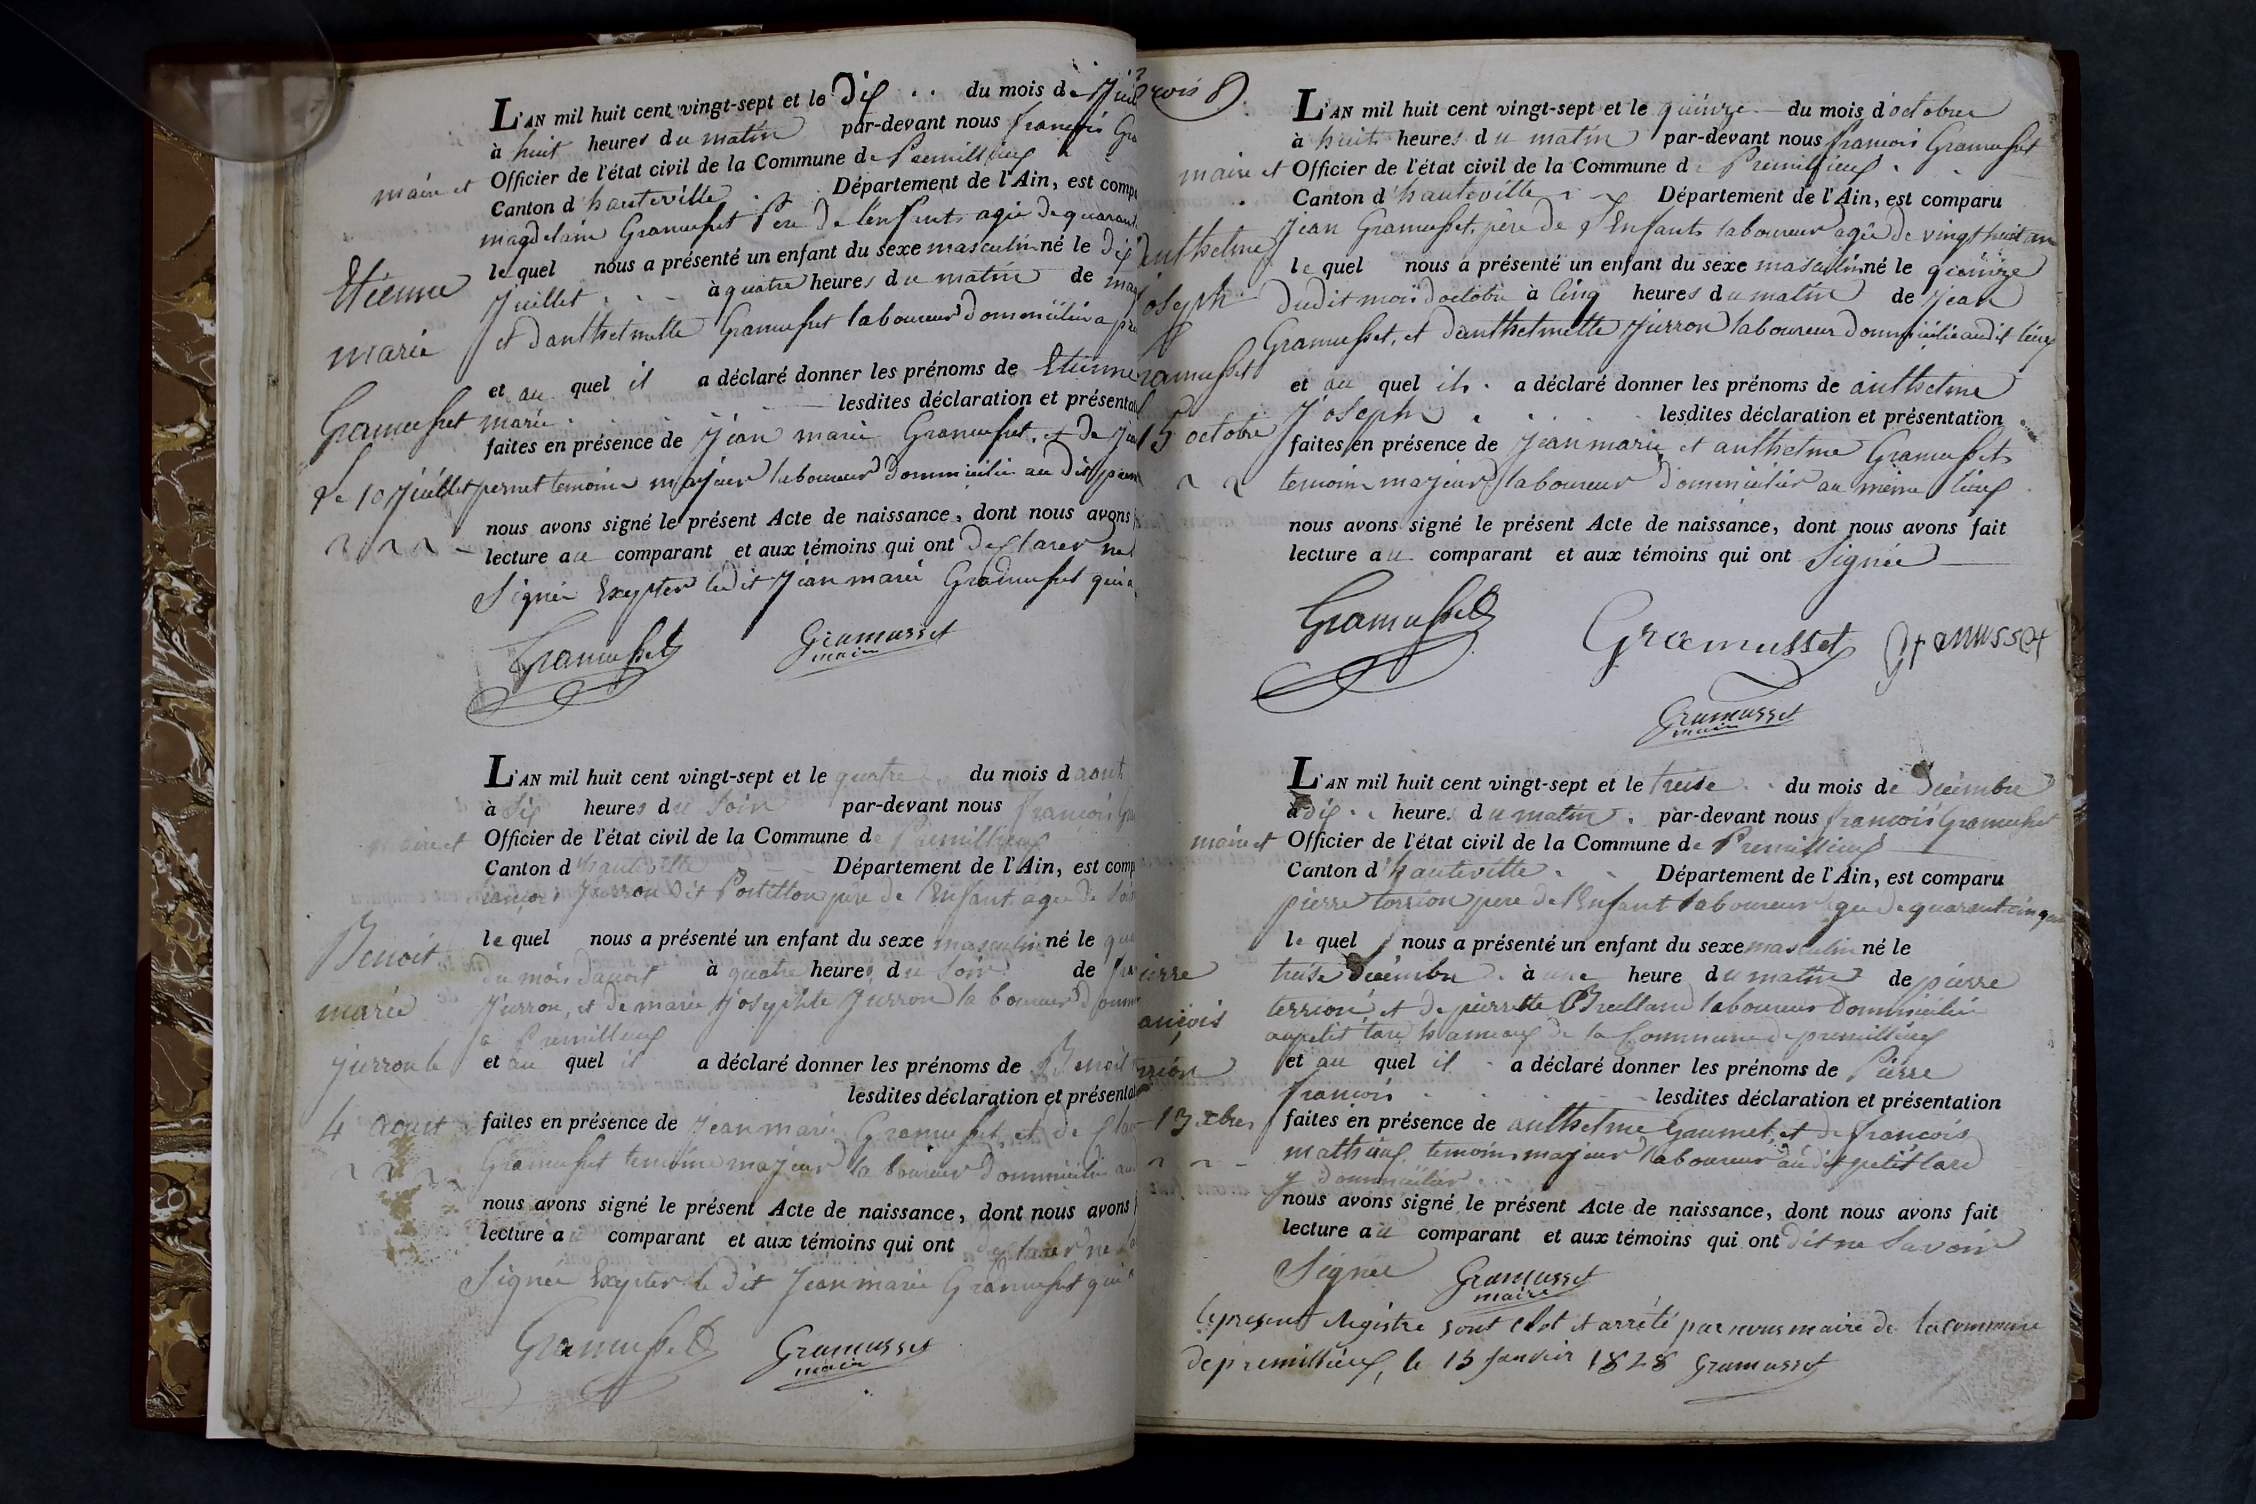 L'AN mil huit cent vingt-sept et le Dix du mois de
à huit heures du matin par-devant nous françois
maire et Officier de l'état civil de la Commune de Premillieux
Canton d'hauteville Département de l'Ain, est
magdelaine Gramusset Père de l'enfent agée de
le quel nous a présenté un enfant du sexe masculin né le dix
Juillet à quatre heures du matin de
et danthelmette Gramusset laboureur dommicilié a
et au quel il a déclaré donner les prénoms de Etienne
marie lesdites déclaration et
faites en présence de Jean marie Gramusset, et de
pernet temoins majeur laboureur dommicilié au dit
nous avons signé le présent Acte de naissance, dont nous avons
lecture au comparant et aux témoins qui ont declarer ne
Signée Exepter ledit Jean marie Gramusset qui a
Etienne
marie
Gramusset
le 10 Juillet
Gramusset
Gramusset
maire
L'AN mil huit cent vingt-sept et le quatre du mois d'aout
à six heures du soir par-devant nous françois
maire et Officier de l'état civil de la Commune de Premillieux
Canton d'hauteville Département de l'Ain, est
Jurron dit Postillon père de l'Enfant agée de
le quel nous a présenté un enfant du sexe masculin né le
du mois daout à quatre heures du soir de
Jurron, et de marie Josephte Jurron laboureur
a Premillieux
et au quel il a déclaré donner les prénoms de Benoit
lesdites déclaration et
faites en présence de Jean marie Gramusset, et de
Gramusset temoins majeur laboureur dommicilié
nous avons signé le présent Acte de naissance, dont nous avons
lecture au comparant et aux témoins qui ont declarer ne
Signée Exepter le dit Jean marie Gramusset qui a
Benoit
marie
Jurron le
4 aout
Gramusset
Gramusset
maire
L'AN mil huit cent vingt-sept et le quinze du mois d'octobre
à huit heures du matin par-devant nous françois Gramusset
maire et Officier de l'état civil de la Commune de Premillieux
Canton d'hauteville Département de l'Ain, est comparu
Jean Gramusset, père de l'Enfant laboureur agée de vingt huit an
le quel nous a présenté un enfant du sexe masculin né le quinze
dudit mois doctobre à cinq heures du matin de Jean
Gramusset, et danthelmette Jurron laboureur dommicilié audit lieux
et au quel il a déclaré donner les prénoms de anthelme
Joseph lesdites déclaration et présentation
faites en présence de Jean marie et anthelme Gramusset
temoins majeur laboureur dommicilier au même lieux
nous avons signé le présent Acte de naissance, dont nous avons fait
lecture au comparant et aux témoins qui ont Signée
anthelme
Joseph
15 octobre
Gramusset
Gramusset
Gramusset
Gramusset
maire
L'AN mil huit cent vingt-sept et le treise du mois de Decembre
à dix heures du matin par-devant nous françois Gramusset
maire et Officier de l'état civil de la Commune de Premillieux
Canton d'hauteville Département de l'Ain, est comparu
pierre torrion pere de l'Enfant laboureur agée de quarante cinq
le quel nous a présenté un enfant du sexe masculin né le
treise Decembre à une heure du matin de pierre
terrion et de pierrette laboureur dommicilié
au petit lare hameaux de la Commune de premillieux
et au quel il a déclaré donner les prénoms de Pierre
francois lesdites déclaration et présentation
faites en présence de anthelme Gaumet, et de francois
mathieux temoins majeur laboureur au dit petit lare
y dommicilier
nous avons signé le présent Acte de naissance, dont nous avons fait
lecture au comparant et aux témoins qui ont dit ne savoir
Signée
13 xbre
Gramusset
maire
le present Registre sont clot et arrété par nous maire de la commune
de premillieux, le 15 Janvier 1828 Gramusset